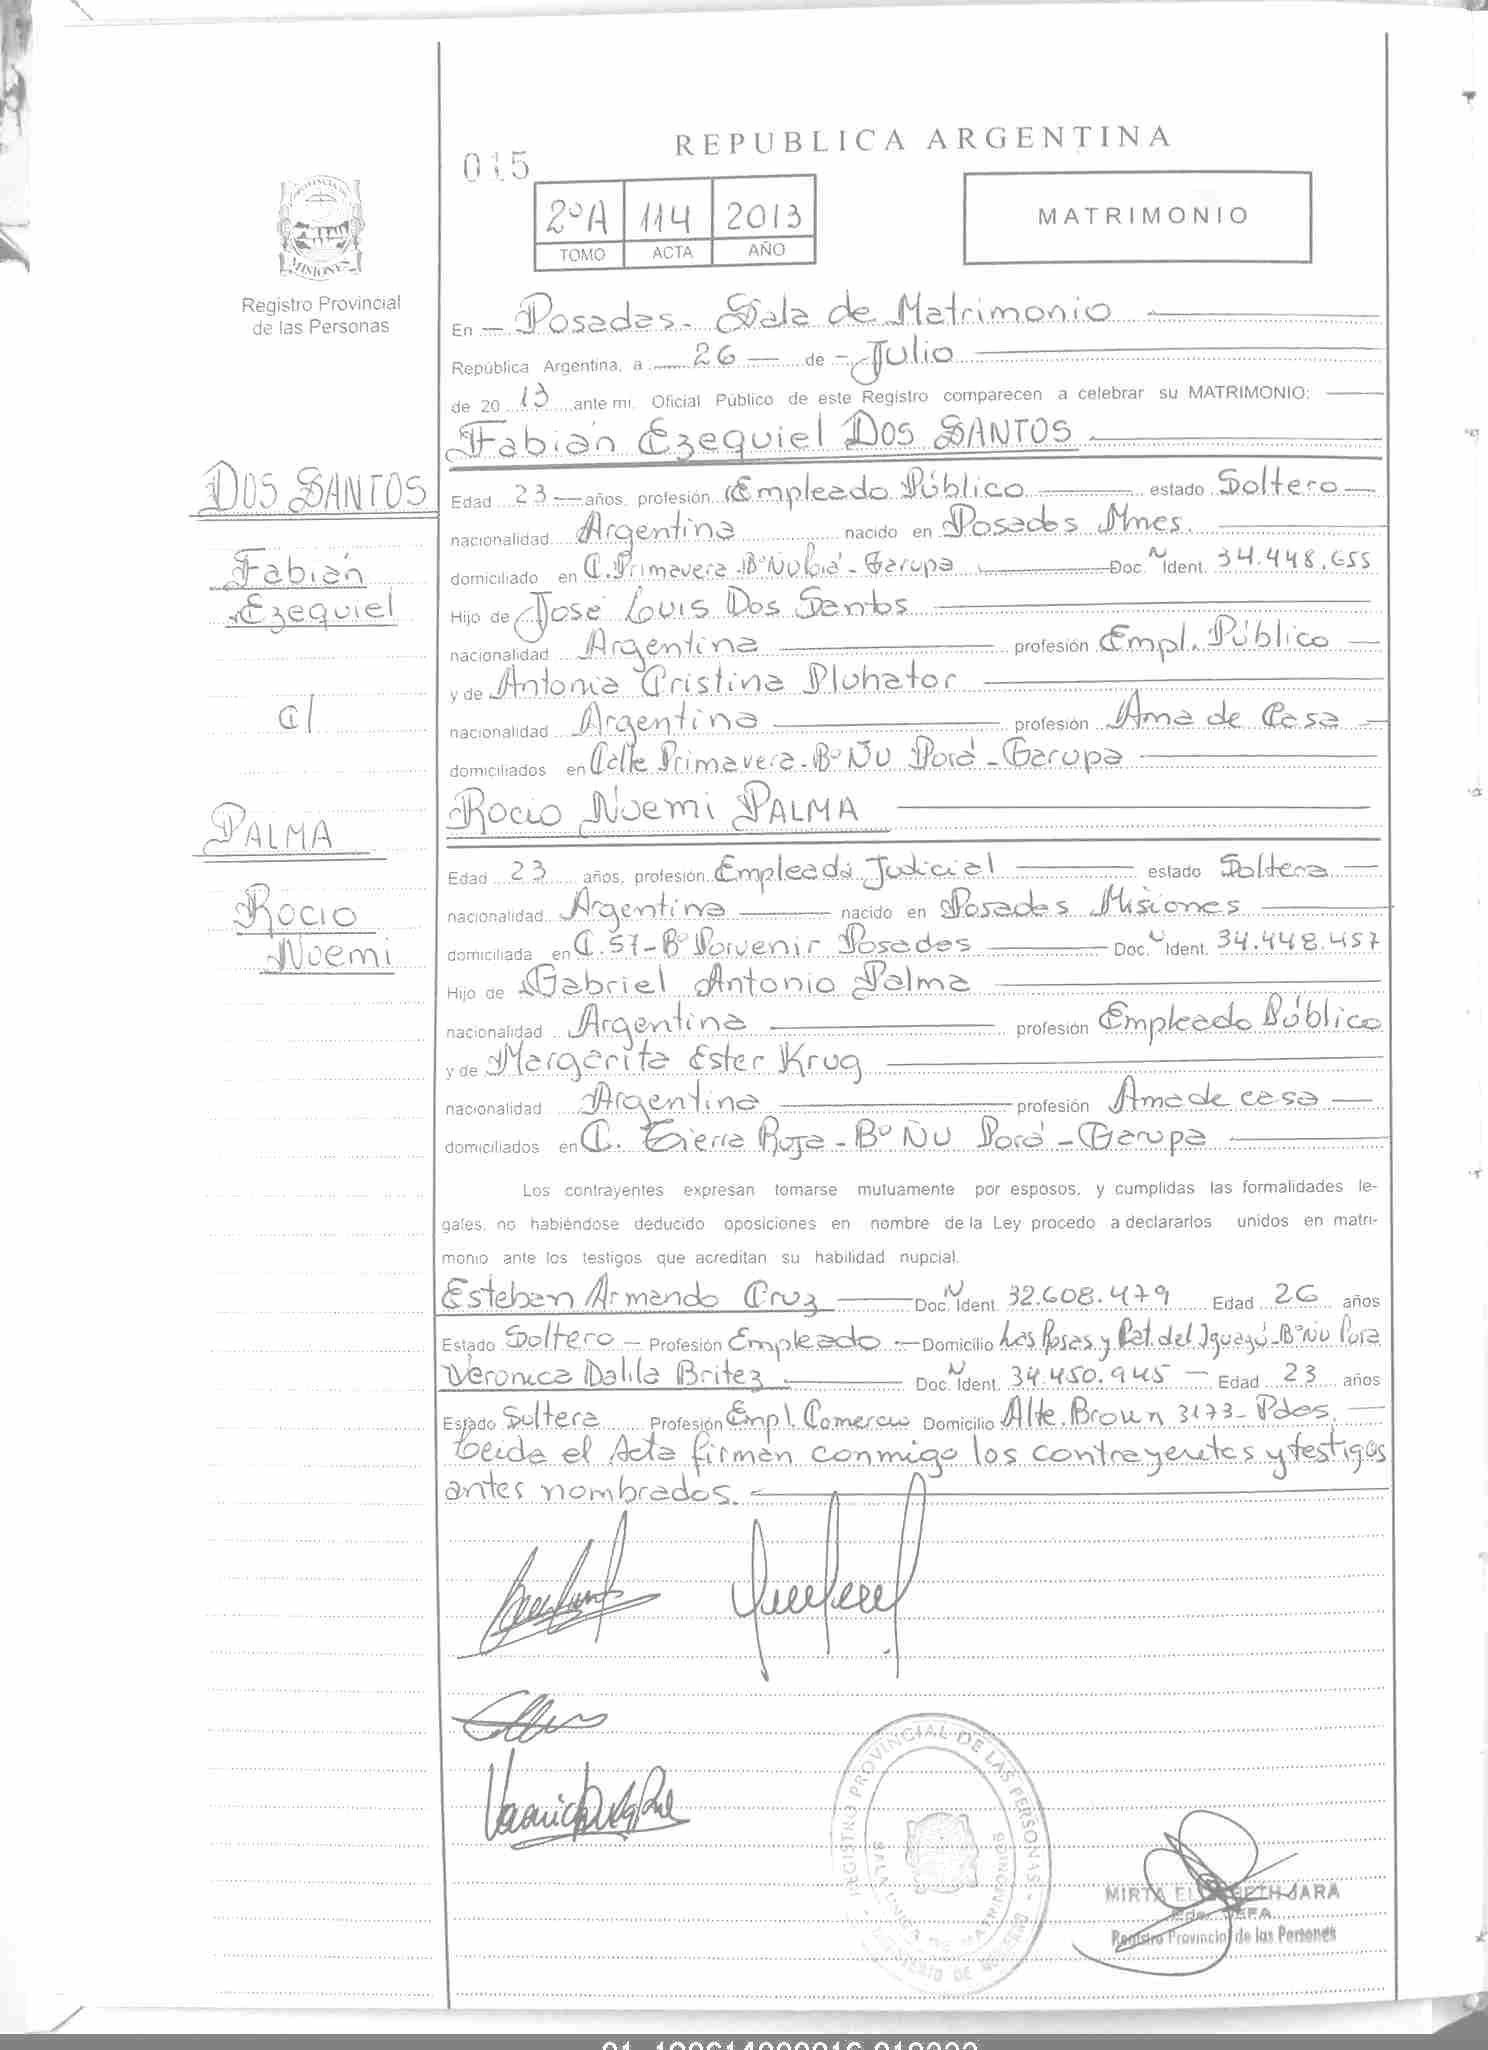 REPUBLICA ARGENTINA
015
2ºA 114 2013
TOMO ACTA AÑO
MATRIMONIO
PROVINCIA DE
MISIONES
Registro Provincial
de las Personas
En Posadas. Sala de Matrimonio
República Argentina, a 26 de Julio
de 2013 ante mi, Oficial Público de este Registro comparecen a celebrar su MATRIMONIO:
Fabián Ezequiel DOS SANTOS
DOS SANTOS
Fabián
Ezequiel
C/
PALMA
Rocio
Noemi
Edad 23 años, profesión Empleado Público estado Soltero
nacionalidad Argentina nacido en Posadas Mnes.
domiciliado en C. Primavera - Bº Ñu - Garupa Doc. N Ident. 34.448.655
Hijo de José Luis Dos Santos
nacionalidad Argentina profesión Empl. Público
y de Antonia Cristina Pluhator
nacionalidad Argentina profesión Ama de Casa
domiciliados en Calle Primavera - Bº Ñu Porá - Garupa
Rocio Noemi PALMA
Edad 23 años, profesión Empleada Judicial estado Soltera
nacionalidad Argentina nacido en Posadas Misiones
domiciliada en C. 57 - Bº Porvenir Posadas Doc. N Ident. 34.448.457
Hijo de Gabriel Antonio Palma
nacionalidad Argentina profesión Empleado Público
y de Margarita Ester Krug
nacionalidad Argentina profesión Ama de casa
domiciliados en C. Tierra Roja - Bº Ñu Porá - Garupa
Los contrayentes expresan tomarse mutuamente por esposos, y cumplidas las formalidades le-
gales, no habiéndose deducido oposiciones en nombre de la Ley procedo a declararlos unidos en matri-
monio ante los testigos que acreditan su habilidad nupcial.
Esteban Armando Cruz Doc. N Ident. 32.608.479 Edad 26 años
Estado Soltero Profesión Empleado Domicilio Las Rosas y Cat. del Iguazú - Bº Ñu Pora
Veronica Dalila Britez Doc. N Ident. 34.450.945 Edad 23 años
Estado Soltera Profesión Empl. Comercio Domicilio Alte. Brown 3173 - Pdas.
Leida el Acta firman conmigo los contrayentes y testigos
antes nombrados.
REGISTRO PROVINCIAL DE LAS PERSONAS
SALA UNICA DE MATRIMONIOS
MINISTERIO DE GOBIERNO
MIRTA JARA
Registro Provincial de las Personas